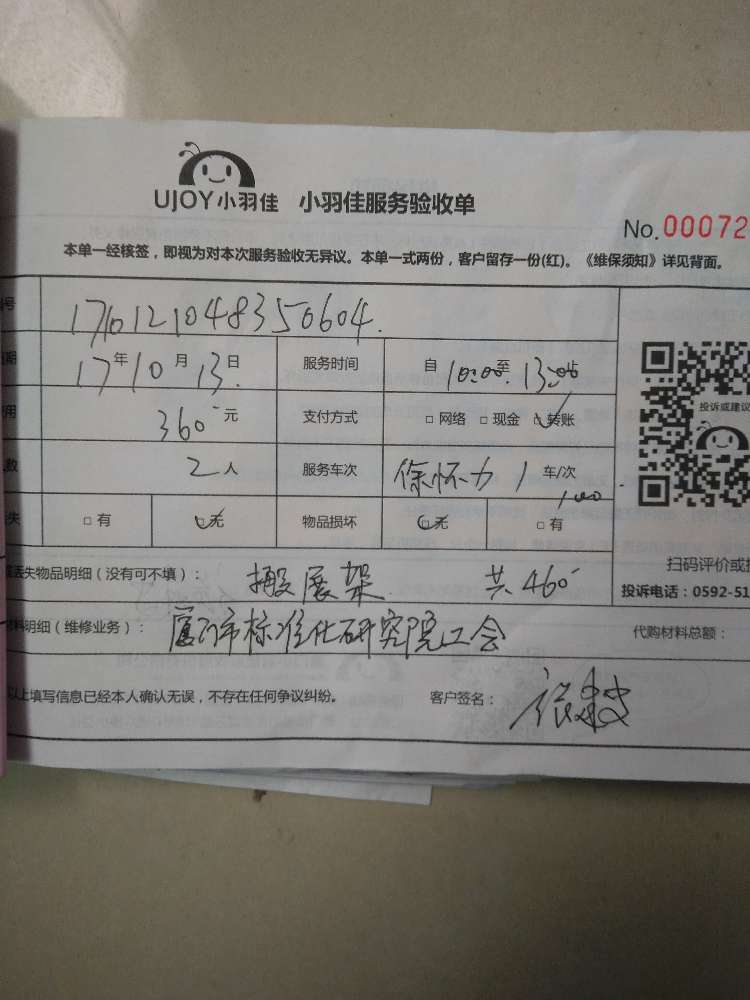 UJOY小羽佳 小羽佳服务验收单
No.00072
本单一经核签，即视为对本次服务验收无异议。本单一式两份，客户留存一份(红)。《维保须知》详见背面。
号 1710121048350604.
期 17年10月13日 服务时间 自10:00至13:00止
用 360元 支付方式 □网络 □现金 ☑转账
数 2人 服务车次 徐怀力 1 车/次
100
失 □有 ☑无 物品损坏 ☑无 □有
投诉或建议
扫码评价或投
丢失物品明细（没有可不填）： 搬展架 共460
投诉电话：0592-51
料明细（维修业务）： 厦门市标准化研究院工会 代购材料总额：
以上填写信息已经本人确认无误，不存在任何争议纠纷。 客户签名：